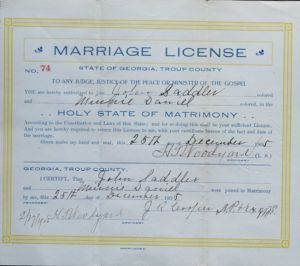 MARRIAGE LICENSE
NO. 74
STATE OF GEORGIA, TROUP COUNTY
TO ANY JUDGE, JUSTICE OF THE PEACE OR MINISTER OF THE GOSPEL
YOU are hereby authorized to join John Saddler colored
and Minnie Daniel colored, in the
HOLY STATE OF MATRIMONY
According to the Constitution and Laws of this State; and for so doing this shall be your sufficient License.
And you are hereby required to return this License to me, with your certificate hereon of the fact and date of
the marriage.
Given under my hand and seal, this 25th December
H. T. Woodyard (L. S.)
GEORGIA, TROUP COUNTY.
I CERTIFY, That John Saddler
and Minnie Daniel were joined in Matrimony
by me, this 25th day of December
H. T. Woodyard J. R.